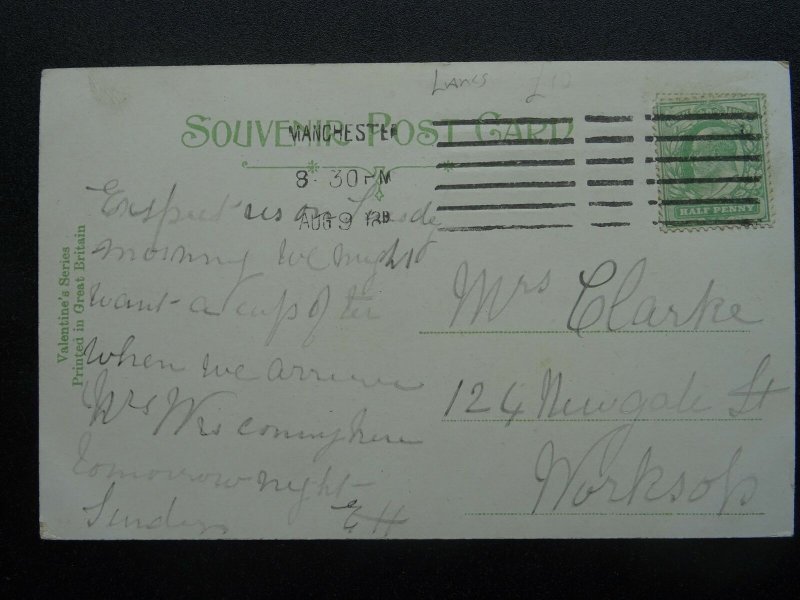 Lancs £10
SOUVENIR POST CARD
MANCHESTER
8. 30 PM
AUG 9
HALF PENNY
Valentine's Series
Printed in Great Britain
Exspect us on
morning We might
want a cup of te
When we arrive
Mrs coming here
tomorrow night
Sunday EH
Mrs Clarke
124 Newgate St
Worksop